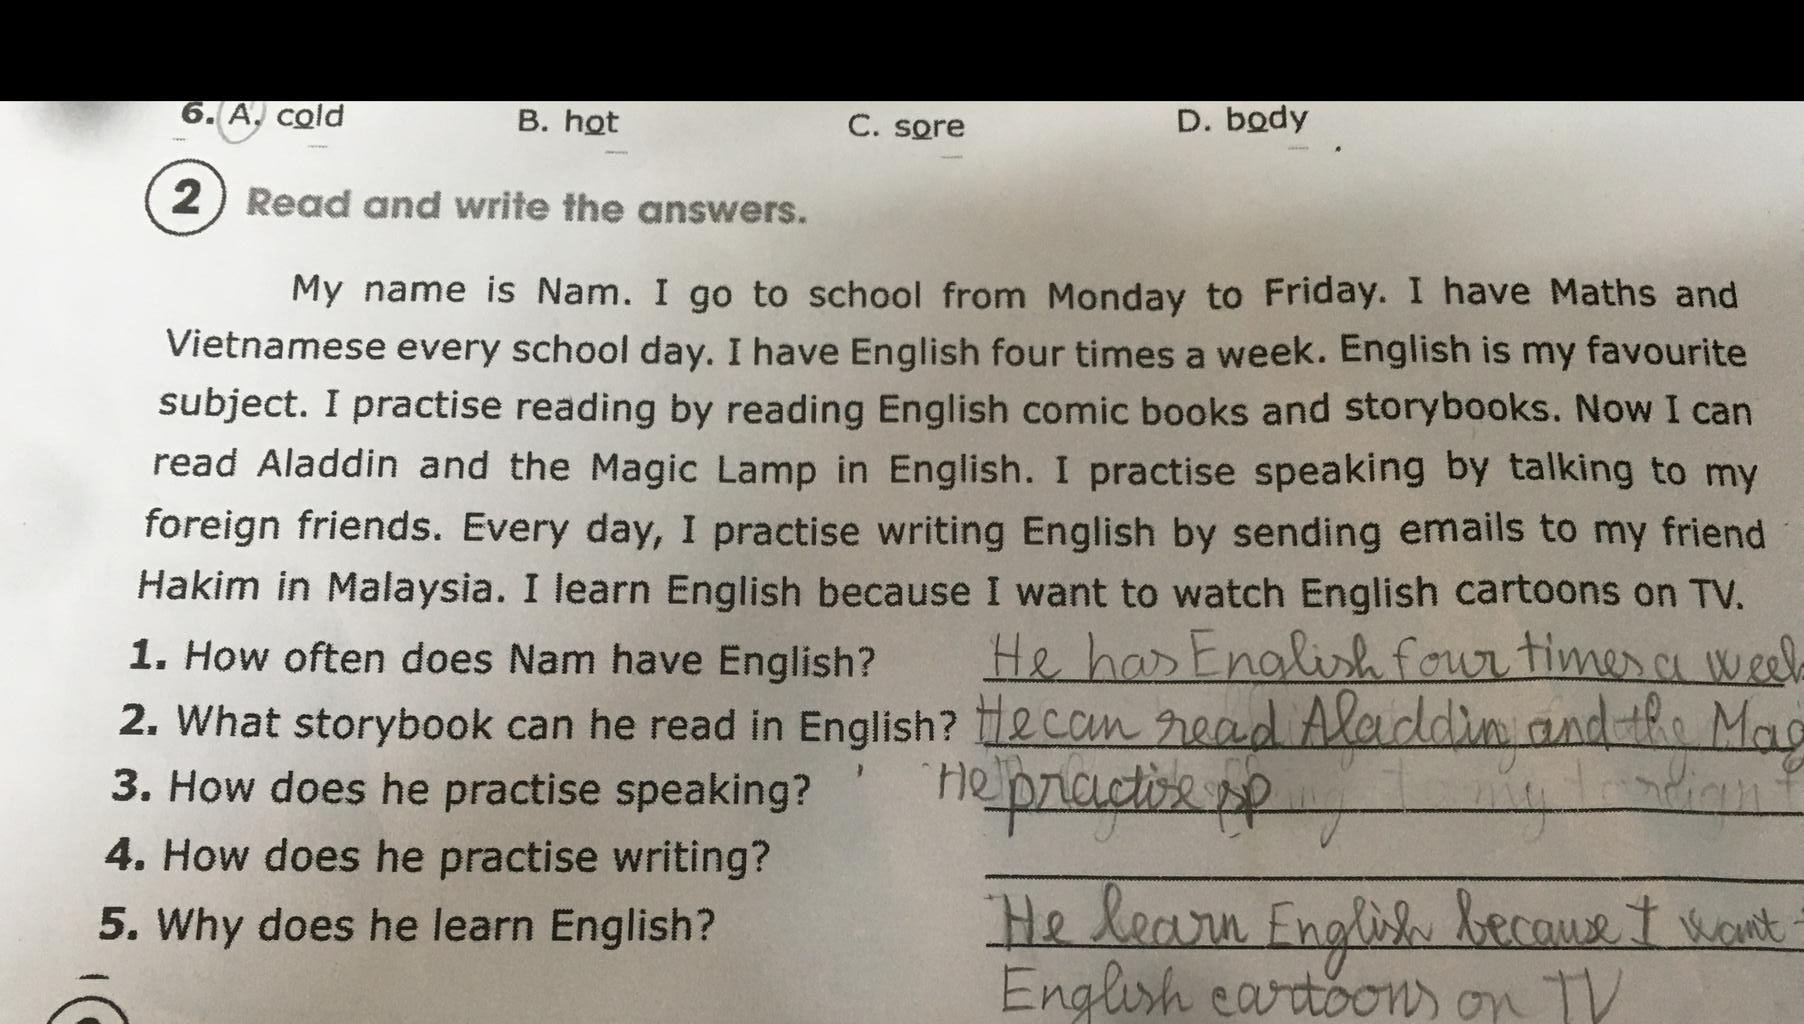 6. A. cold B. hot C. sore D. body
2 Read and write the answers.
My name is Nam. I go to school from Monday to Friday. I have Maths and
Vietnamese every school day. I have English four times a week. English is my favourite
subject. I practise reading by reading English comic books and storybooks. Now I can
read Aladdin and the Magic Lamp in English. I practise speaking by talking to my
foreign friends. Every day, I practise writing English by sending emails to my friend
Hakim in Malaysia. I learn English because I want to watch English cartoons on TV.
1. How often does Nam have English? He has English four times a week
2. What storybook can he read in English? He can read Aladdin and the Mag
3. How does he practise speaking? He practise sp
4. How does he practise writing?
5. Why does he learn English? He learn English because I want
English cartoons on TV